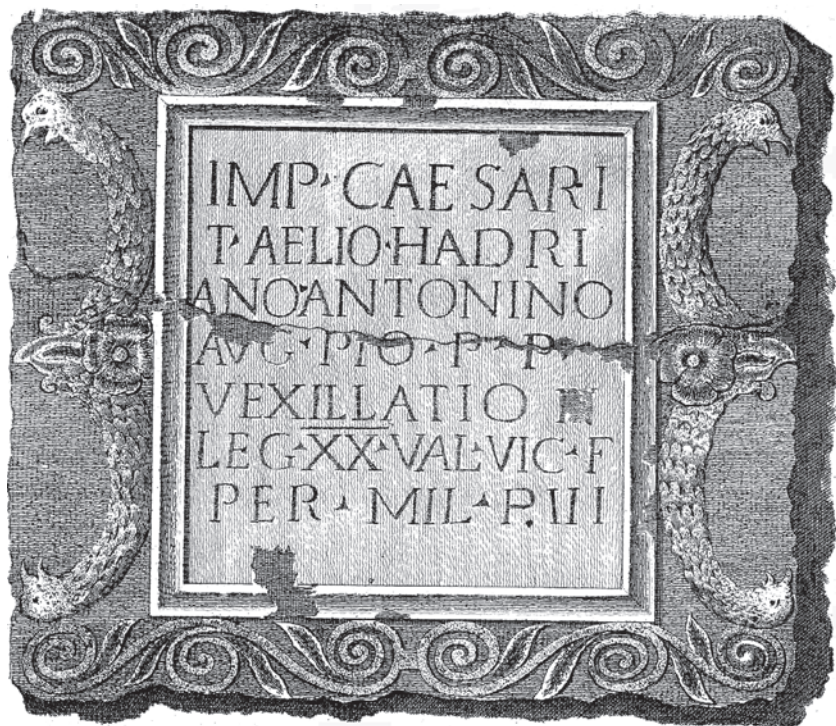 IMP · CAESARI
T · AELIO · HADRI
ANO · ANTONINO
AVG · PIO · P · P ·
VEXILLATIO
LEG · XX · VAL · VIC · F
PER · MIL · P. III